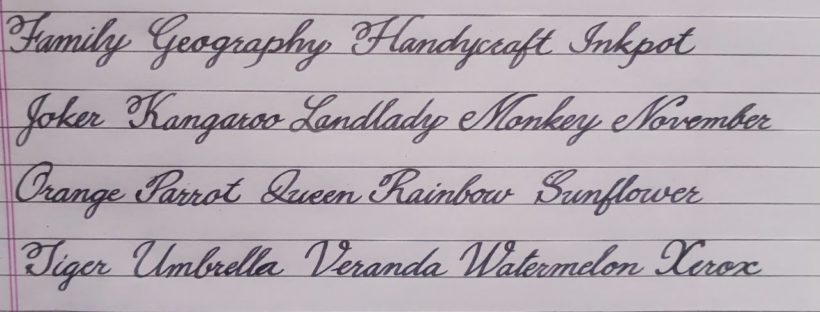 Family Geography Handycraft Inkpot
Joker Kangaroo Landlady Monkey November
Orange Parrot Queen Rainbow Sunflower
Tiger Umbrella Veranda Watermelon Xerox